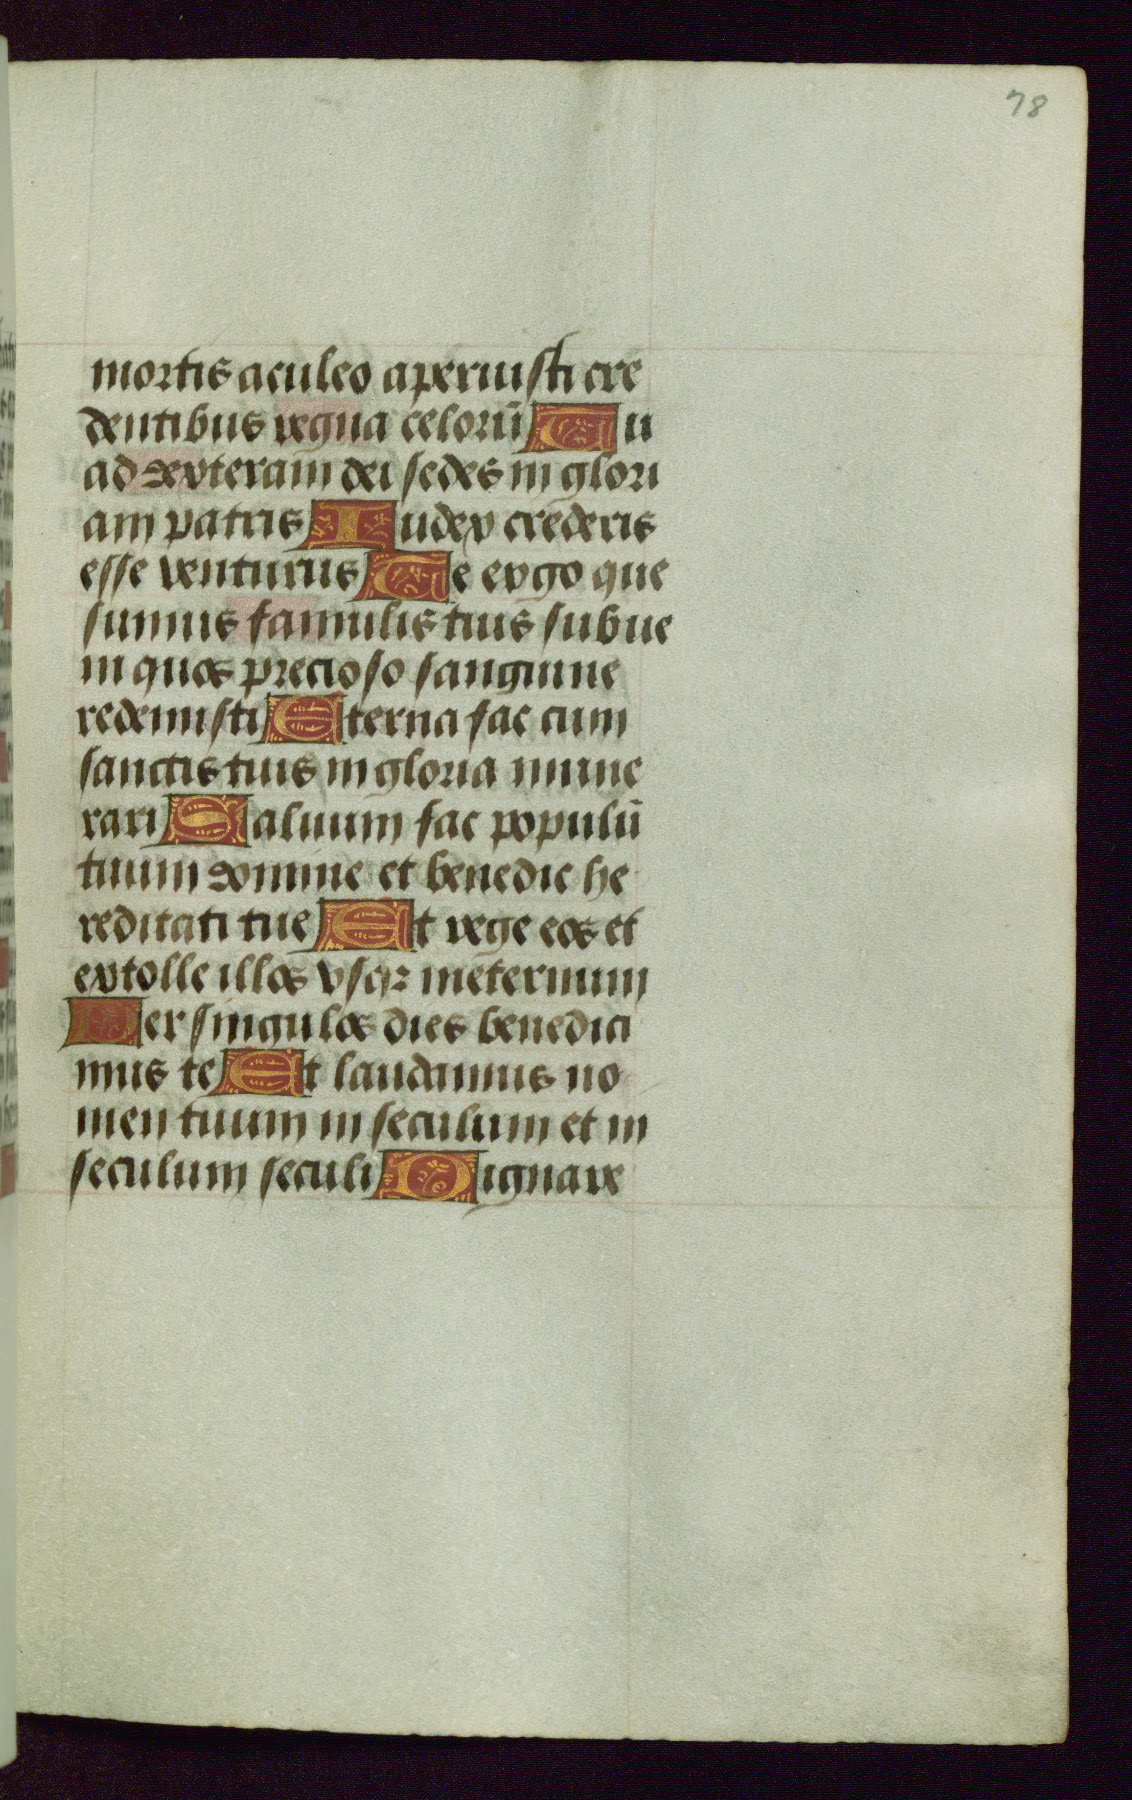 78
mortis aculeo aperuisti cre
dentibus regna celorū Tu
ad dexteram dei sedes in glori
am patris Iudex crederis
esse venturus Te ergo que
sumus famulis tuis subue
ni quos precioso sanguine
redemisti Eterna fac cum
sanctis tuis in gloria mune
rari Saluum fac populū
tuum domine et benedic he
reditati tue Et rege eos et
extolle illos vsqꝫ in eternum
Per singulos dies benedici
mus te Et laudamus no
men tuum in seculum et in
seculum seculi Dignare